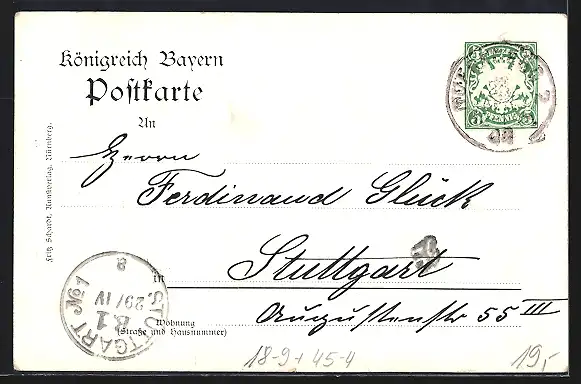 Königreich Bayern
Postkarte
An
Herrn
Ferdinand Glück
Stuttgart
in
Augustenstr 55 III
Wohnung
(Straße und Hausnummer)
Fritz Schardt, Kunstverlag, Nürnberg.
5 PFENNIG 5
STUTTGART No 1
29/IV
8-1
8
18-9 + 45-4
19,-